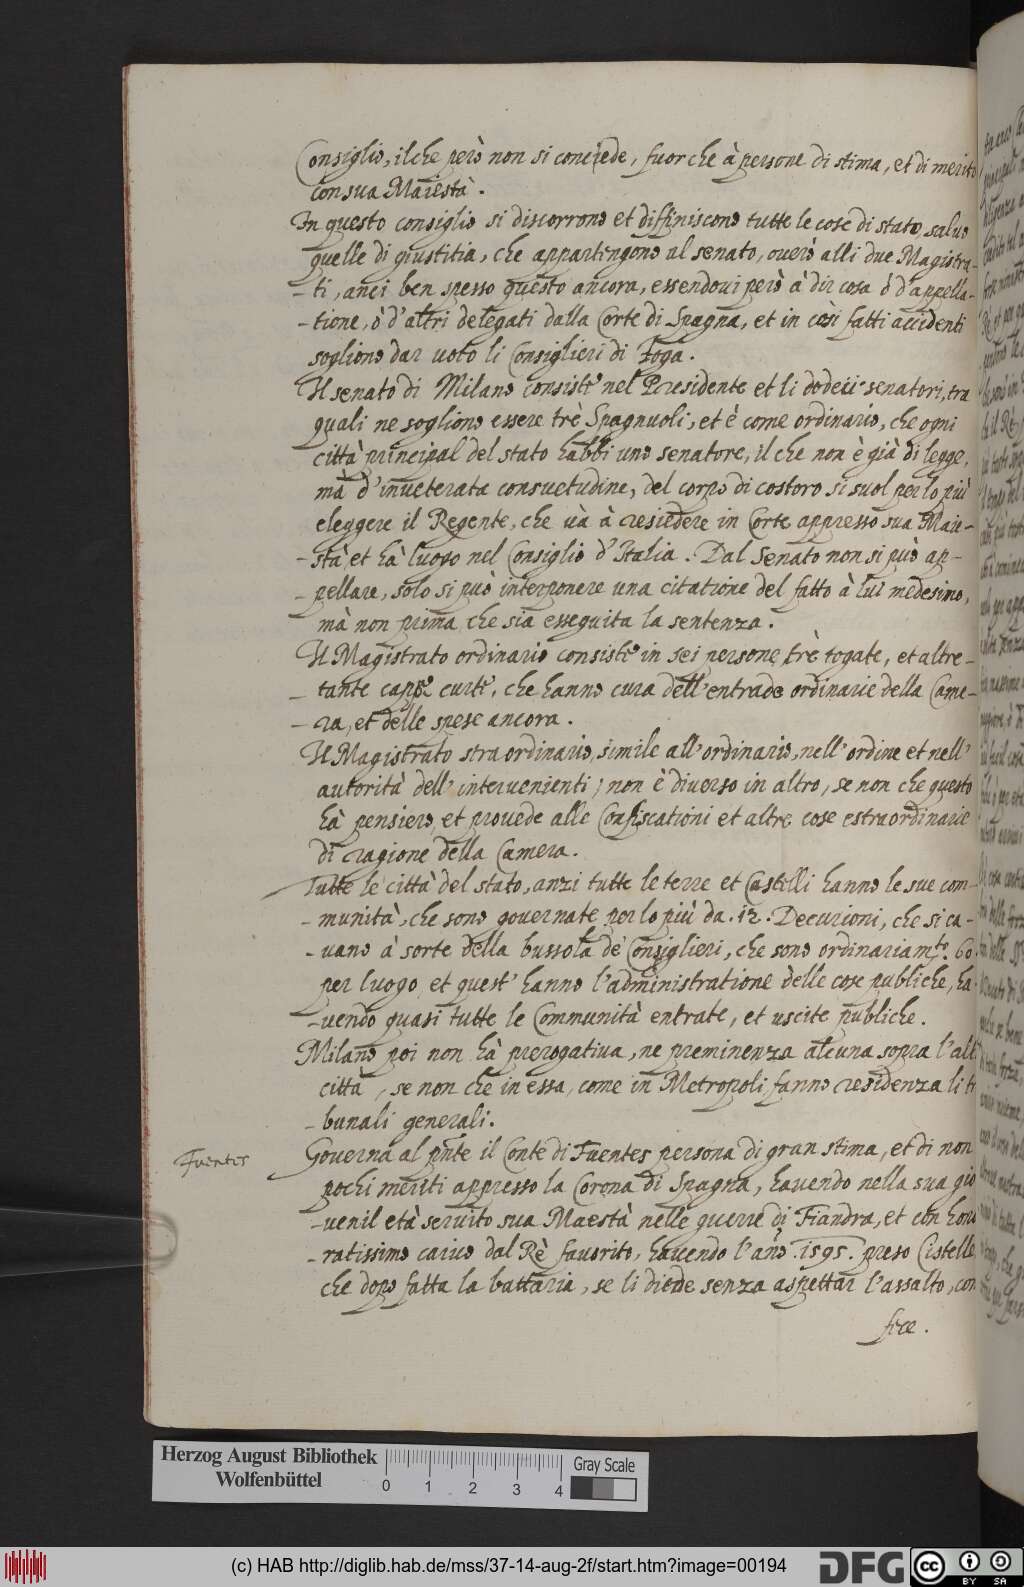 Consiglio, il che però non si concede, fuor che à persone di stima, et di merito
con sua Maiestà.
In questo consiglio si discorrono et diffiniscono tutte le cose di stato, salvo
quelle di giustitia, che appartengono al senato, overo alli due Magistra-
-ti, anci ben spesso questo ancora, essendovi però à dir cosa ò d'appella-
-tione, ò d'altri delegati dalla Corte di Spagna, et in così fatti accidenti
sogliono dar voto li Consiglieri di Toga.
Il senato di Milano consiste nel Presidente et li dodeci senatori, tra
quali ne sogliono essere trè Spagnuoli, et é come ordinario, che ogni
città principal del stato habbi uno senatore, il che non è già di legge,
mà d'inveterata consuetudine, del corpo di costoro si suol per lo più
eleggere il Regente, che uà à resiedere in Corte appresso sua Maie-
-stà et hà luogo nel Consiglio d'Italia. Dal Senato non si può ap-
-pellare, solo si può interponere una citatione del fatto à lui medesimo,
mà non prima che sia esseguita la sentenza.
Il Magistrato ordinario consiste in sei persone, trè togate, et altre-
-tante curte, che hanno cura dell'entrade ordinarie della Came-
-ra, et delle spese ancora.
Il Magistrato straordinario, simile all'ordinario, nell'ordine et nell'
autorità dell'intervenienti; non è diverso in altro, se non che questo
hà pensiero, et provede alle Confiscationi et altre cose estraordinarie
di ragione della Camera.
Tutte le città del stato, anzi tutte le terre et Castelli hanno le sue com-
-munità, che sono governate per lo più da .12. Decurioni, che si ca-
-vano à sorte della bussola de Consiglieri, che sono ordinariam.te 60.
per luogo, et quest' hanno l'administratione delle cose publiche, ha-
-vendo quasi tutte le Communità entrate, et uscite publiche.
Milano poi non hà prerogativa, ne preminenza alcuna sopra l'alt
città, se non che in essa, come in Metropoli fanno residenza li tr
-bunali generali.
Fuentes
Governa al pnte il Conte di Fuentes persona di gran stima, et di non
pochi meriti appresso la Corona di Spagna, havendo nella sua gio
-venil età servito sua Maestà nelle guerre di Fiandra, et con hono
-ratissimo carico dal Rè favorito, havendo l'año .1595. preso Cistelle
che dopo fatta la battaria, se li diede senza aspettar l'assalto, con
fece.
Herzog August Bibliothek
Wolfenbüttel
0 1 2 3 4
Gray Scale
(c) HAB http://diglib.hab.de/mss/37-14-aug-2f/start.htm?image=00194
DFG
cc BY SA